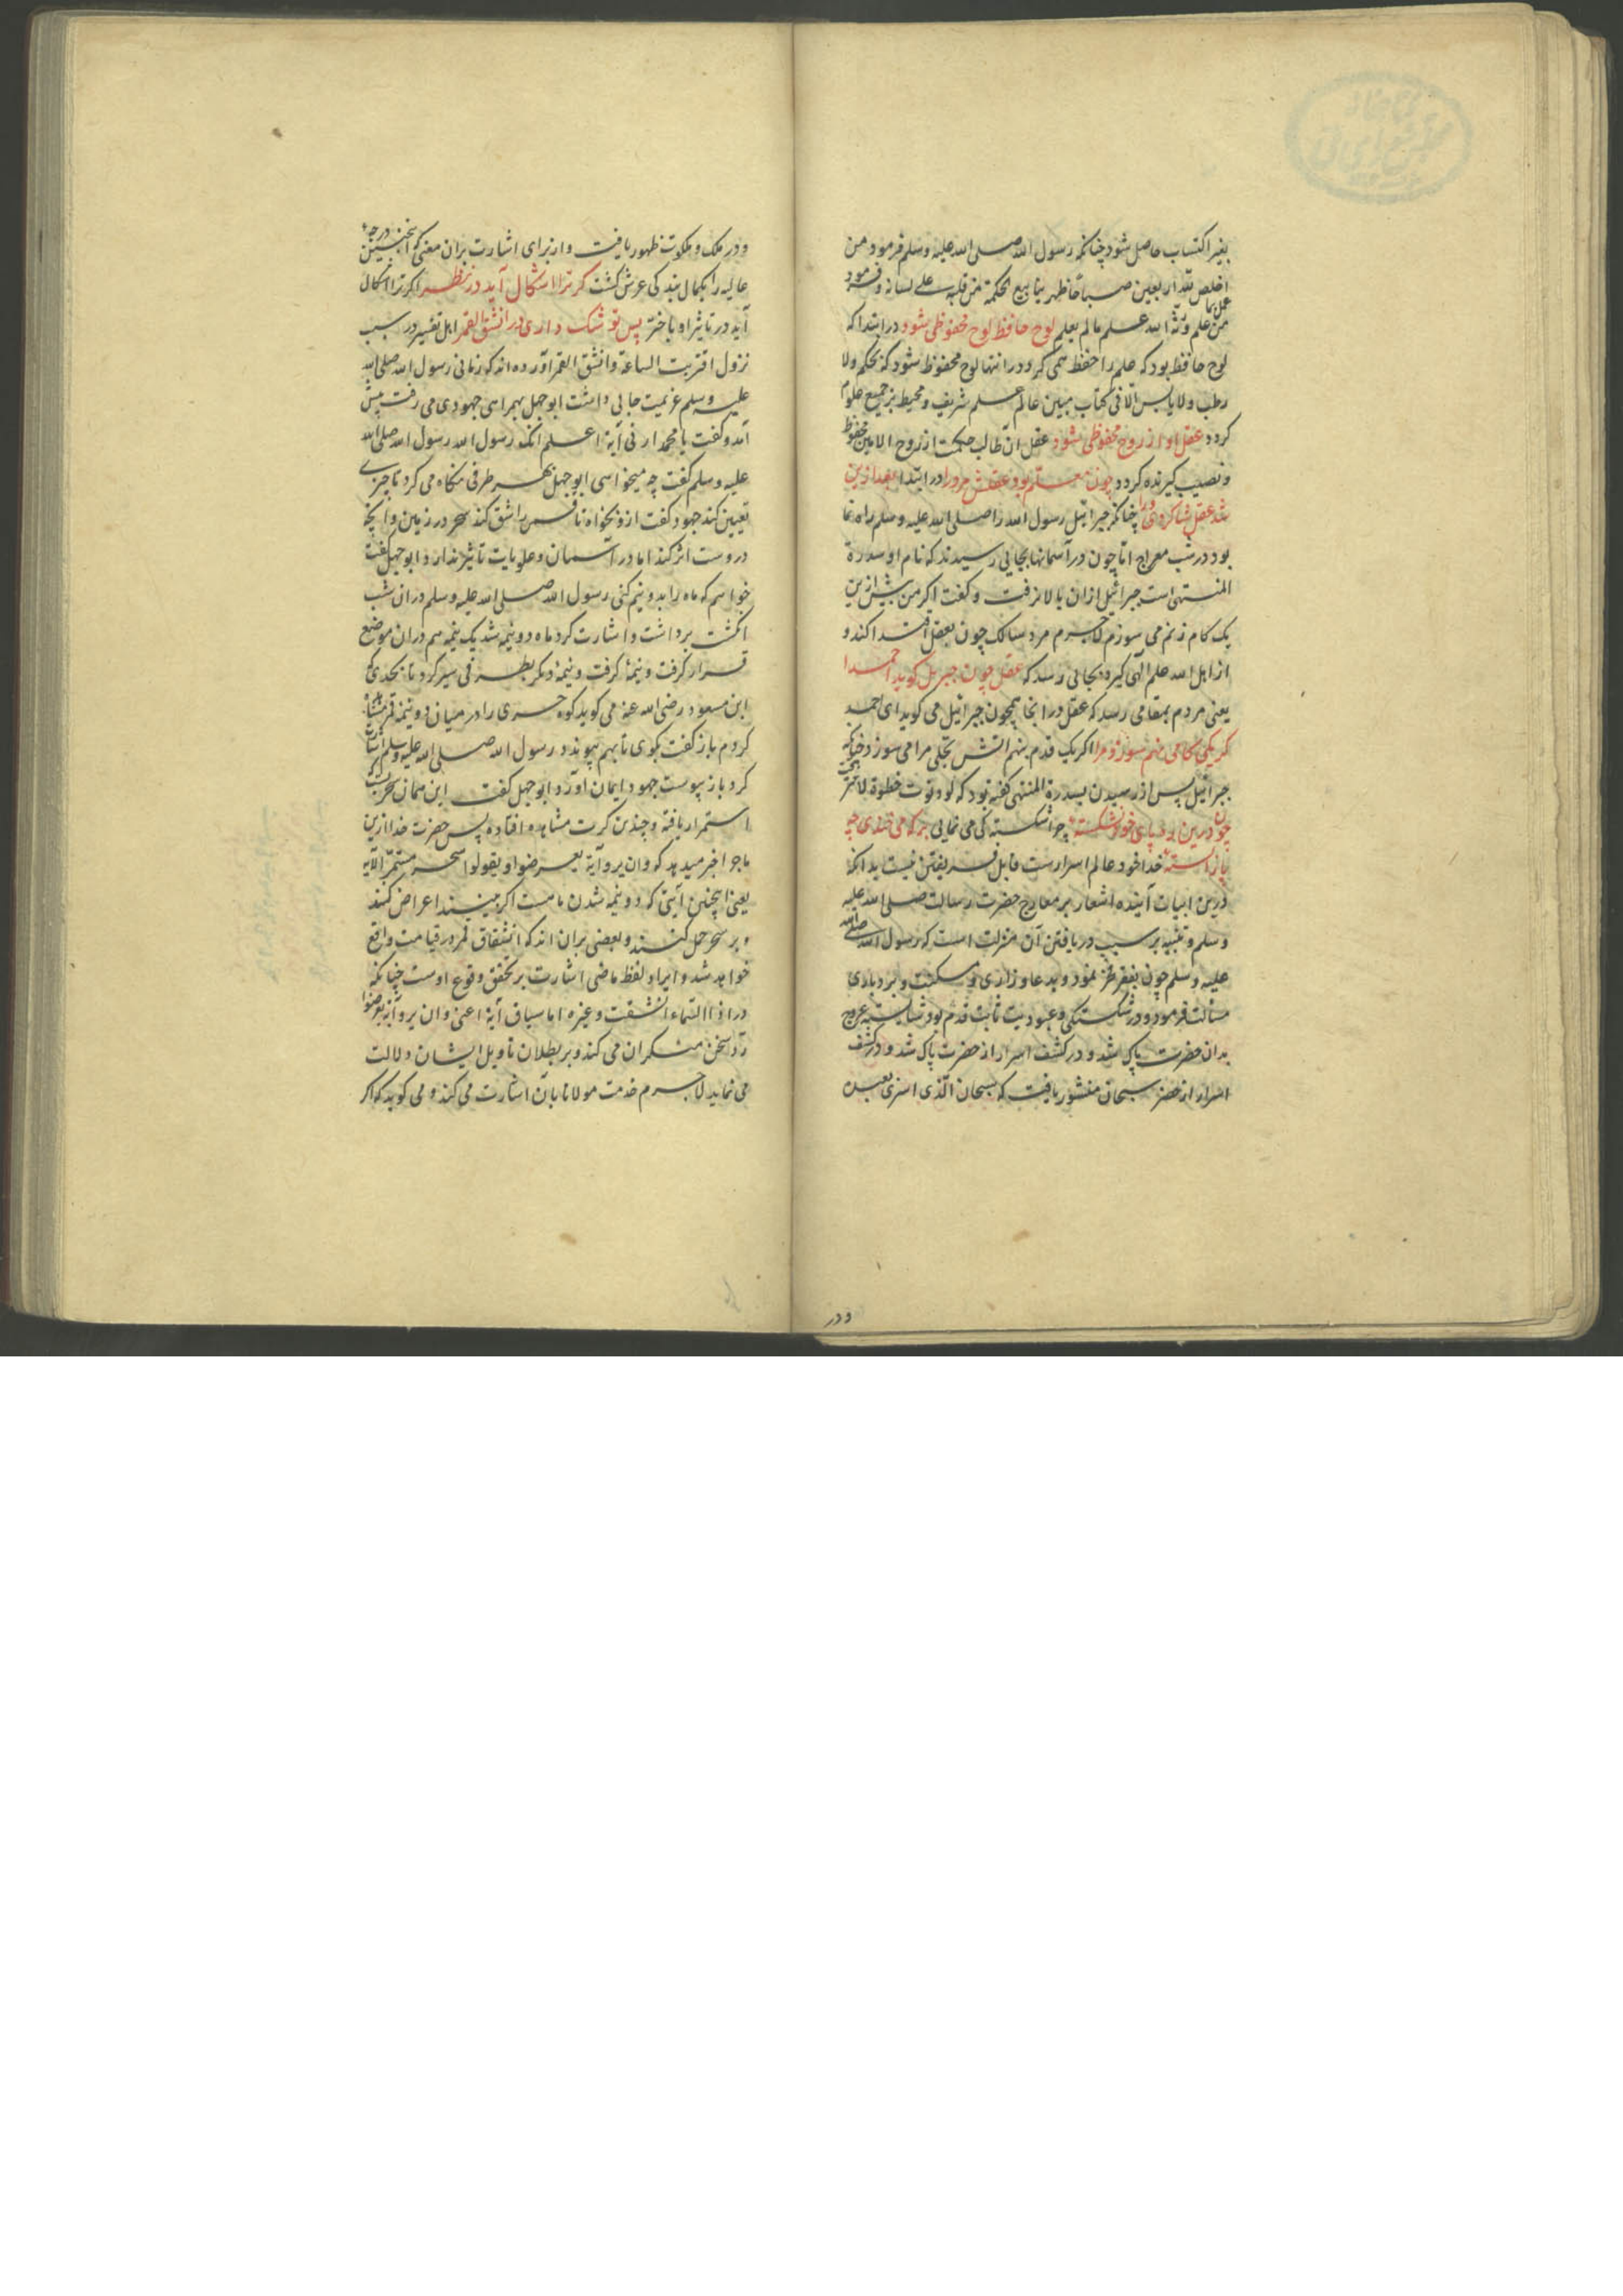 بغیر اکتساب حاصل شود چنانکه رسول الله صلی الله علیه وسلم فرمود من
اخلص لله اربعین صباحا ظهر ینابیع الحکمة من قلبه علی لسانه و فرمود
من عمل بما علم ورثه الله علم ما لم یعلم لوح حافظ لوح محفوظی شود در ابتدا که
لوح حافظ بود که علم را حفظ همی کرد در انتها لوح محفوظ شود که بحکم ولا
رطب ولا یابس الا فی کتاب مبین عالم علم شریف و محیط بر جمیع علوم
کردد عقل او از روح محفوظی شود عقل ان طالب حکمت از روح الامین محفوظ
و نصیب کیرنده کردد چون معلم بود عقلش مرد را در ابتدا بعد ازین
شد عقل شاکردی ورا چنانکه جبرائیل رسول الله را صلی الله علیه وسلم راه نما
بود در شب معراج اما چون در آسمانها بجایی رسیدند که نام او سدرة
المنتهی است جبرائیل ازان بالا نرفت و کفت اکر من پیش ازین
یک کام زنم می سوزم لاجرم مرد سالک چون بعقل اقتدا کند و
از اهل الله علم الهی کیرد بجائی رسد که عقل چون جبریل کوید احمدا
یعنی مردم بمقامی رسد که عقل در انجا همچون جبرائیل می کوید ای احمد
کر یکی کامی نهم سوزد مرا اکر یک قدم بنهم اتش تجلی مرا می سوزد چنانکه
جبرائیل پس از رسیدن بسدرة المنتهی کفته بود که لو دنوت خطوة لاحترقت
چون درین ره پای خود نشکسته چرا شکسته کی می نمایی بر که می خندی چه
پا را بسته خدا خود عالم اسرارست قابل فریفتن نیست بدانکه
درین ابیات آینده اشعار بر معارج حضرت رسالت صلی الله علیه
وسلم و تنبیه بر سبب دریافتن آن منزلت است که رسول الله صلی الله
علیه وسلم چون بفقر فخر نمود و بدعا و زاری و مسکنت و بردباری
مسالت فرمود و در شکستکی و عبودیت ثابت قدم بود شایسته عروج
بدان حضرت پاک شد و در کشف اسرار از حضرت پاک شد و در کشف
اسرار از حضرت سبحان منشور یافت که سبحان الذی اسری بعبده
ودر
و در ملک و ملکوت ظهور یافت و از برای اشارت بران معنی که اینچنین درجهٔ
عالیه را بکمال بندکی عرش کشت کر ترا اشکال آید در نظر اکر ترا اشکال
آید در تاثیر او با ختر پس تو شک داری در انشق القمر اهل تفسیر در سبب
نزول اقتربت الساعة وانشق القمر آورده اند که زمانی رسول الله صلی الله
علیه وسلم عزیمت جایی داشت ابوجهل بهمراهی جهودی می رفت پیش
آمد و کفت یا محمد ارنی آیة اعلم انک رسول الله رسول الله صلی الله
علیه وسلم کفت چه میخواهی ابوجهل بهر طرفی نکاه می کرد تا چیزی
تعیین کند جهود کفت ازو بخواه تا قمر را شق کند سحر در زمین و آنچه
دروست اثر کند اما در آسمان و علویات تاثیر ندارد ابوجهل کفت
خواهم که ماه را بدو نیم کنی رسول الله صلی الله علیه وسلم دران شب
انکشت برداشت و اشارت کرد ماه دو نیمه شد یک نیمه هم دران موضع
قرار کرفت و نیمهٔ دیکر بطرفی سیر کرد تا بحدی که
ابن مسعود رضی الله عنه می کوید کوه حری را در میان دو نیمه قمر مشاهده
کردم باز کفت بکوی تا بهم پیوندد رسول الله صلی الله علیه وسلم اشارت
کرد باز پیوست جهود ایمان آورد و ابوجهل کفت این همان سحریست که
استمرار یافته و چندین کرت مشاهده افتاده پس حضرت خدا ازین
ماجرا خبر میدهد که وان یروا آیة یعرضوا ویقولوا سحر مستمر الآیه
یعنی اینچنین آیتی که دو نیمه شدن ماهست اکر میبینند اعراض کنند
و بر سحر حمل کنند و بعضی بران اند که انشقاق قمر در قیامت واقع
خواهد شد و ایراد لفظ ماضی اشارت بر تحقق وقوع اوست چنانکه
در اذا السماء انشقت و غیره اما سیاق آیة اعنی وان یروا آیة یعرضوا
رد سخن منکران می کند و بر بطلان تاویل ایشان دلالت
می نماید لاجرم خدمت مولانا بآن اشارت می کند و می کوید که اکر